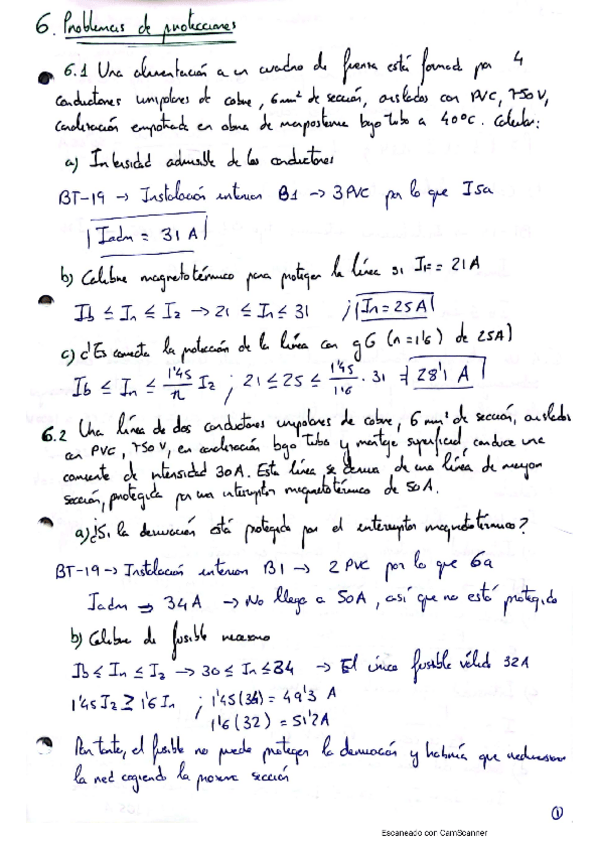 6. Problemas de protecciones
6.1 Una alimentación a un cuadro de fuerza está formada por 4
conductores unipolares de cobre, 6 mm² de sección, aislados con PVC, 750 V,
canalización empotrada en obra de mampostería bajo tubo a 40ºC. Calcular:
a) Intensidad admisible de los conductores
BT-19 → Instalación interior B1 → 3 PVC por lo que I5a
Iadm = 31 A
b) Calibre magnetotérmico para proteger la línea si IF = 21 A
Ib ≤ In ≤ Iz → 21 ≤ In ≤ 31 ; In = 25 A
c) ¿Es correcta la protección de la línea con gG (n = 1'6) de 25A)
Ib ≤ In ≤ 1'45/n Iz ; 21 ≤ 25 ≤ 1'45/1'6 · 31 = 28'1 A
6.2 Una línea de dos conductores unipolares de cobre, 6 mm² de sección, aislados
en PVC, 750 V, en canalización bajo tubo y montaje superficial, conduce una
corriente de intensidad 30 A. Esta línea se deriva de una línea de mayor
sección, protegida por un interruptor magnetotérmico de 50 A.
a) ¿Si la derivación está protegida por el interruptor magnetotérmico?
BT-19 → Instalación interior B1 → 2 PVC por lo que 6a
Iadm ⇒ 34 A → No llega a 50A, así que no está protegido
b) Calibre de fusible necesario
Ib ≤ In ≤ Iz → 30 ≤ In ≤ 34 → El único fusible válido 32A
1'45 Iz ≥ 1'6 In ; 1'45 (34) = 49'3 A
1'6 (32) = 51'2 A
Por tanto, el fusible no puede proteger la derivación y habría que
la red cogiendo la sección
1
Escaneado con CamScanner